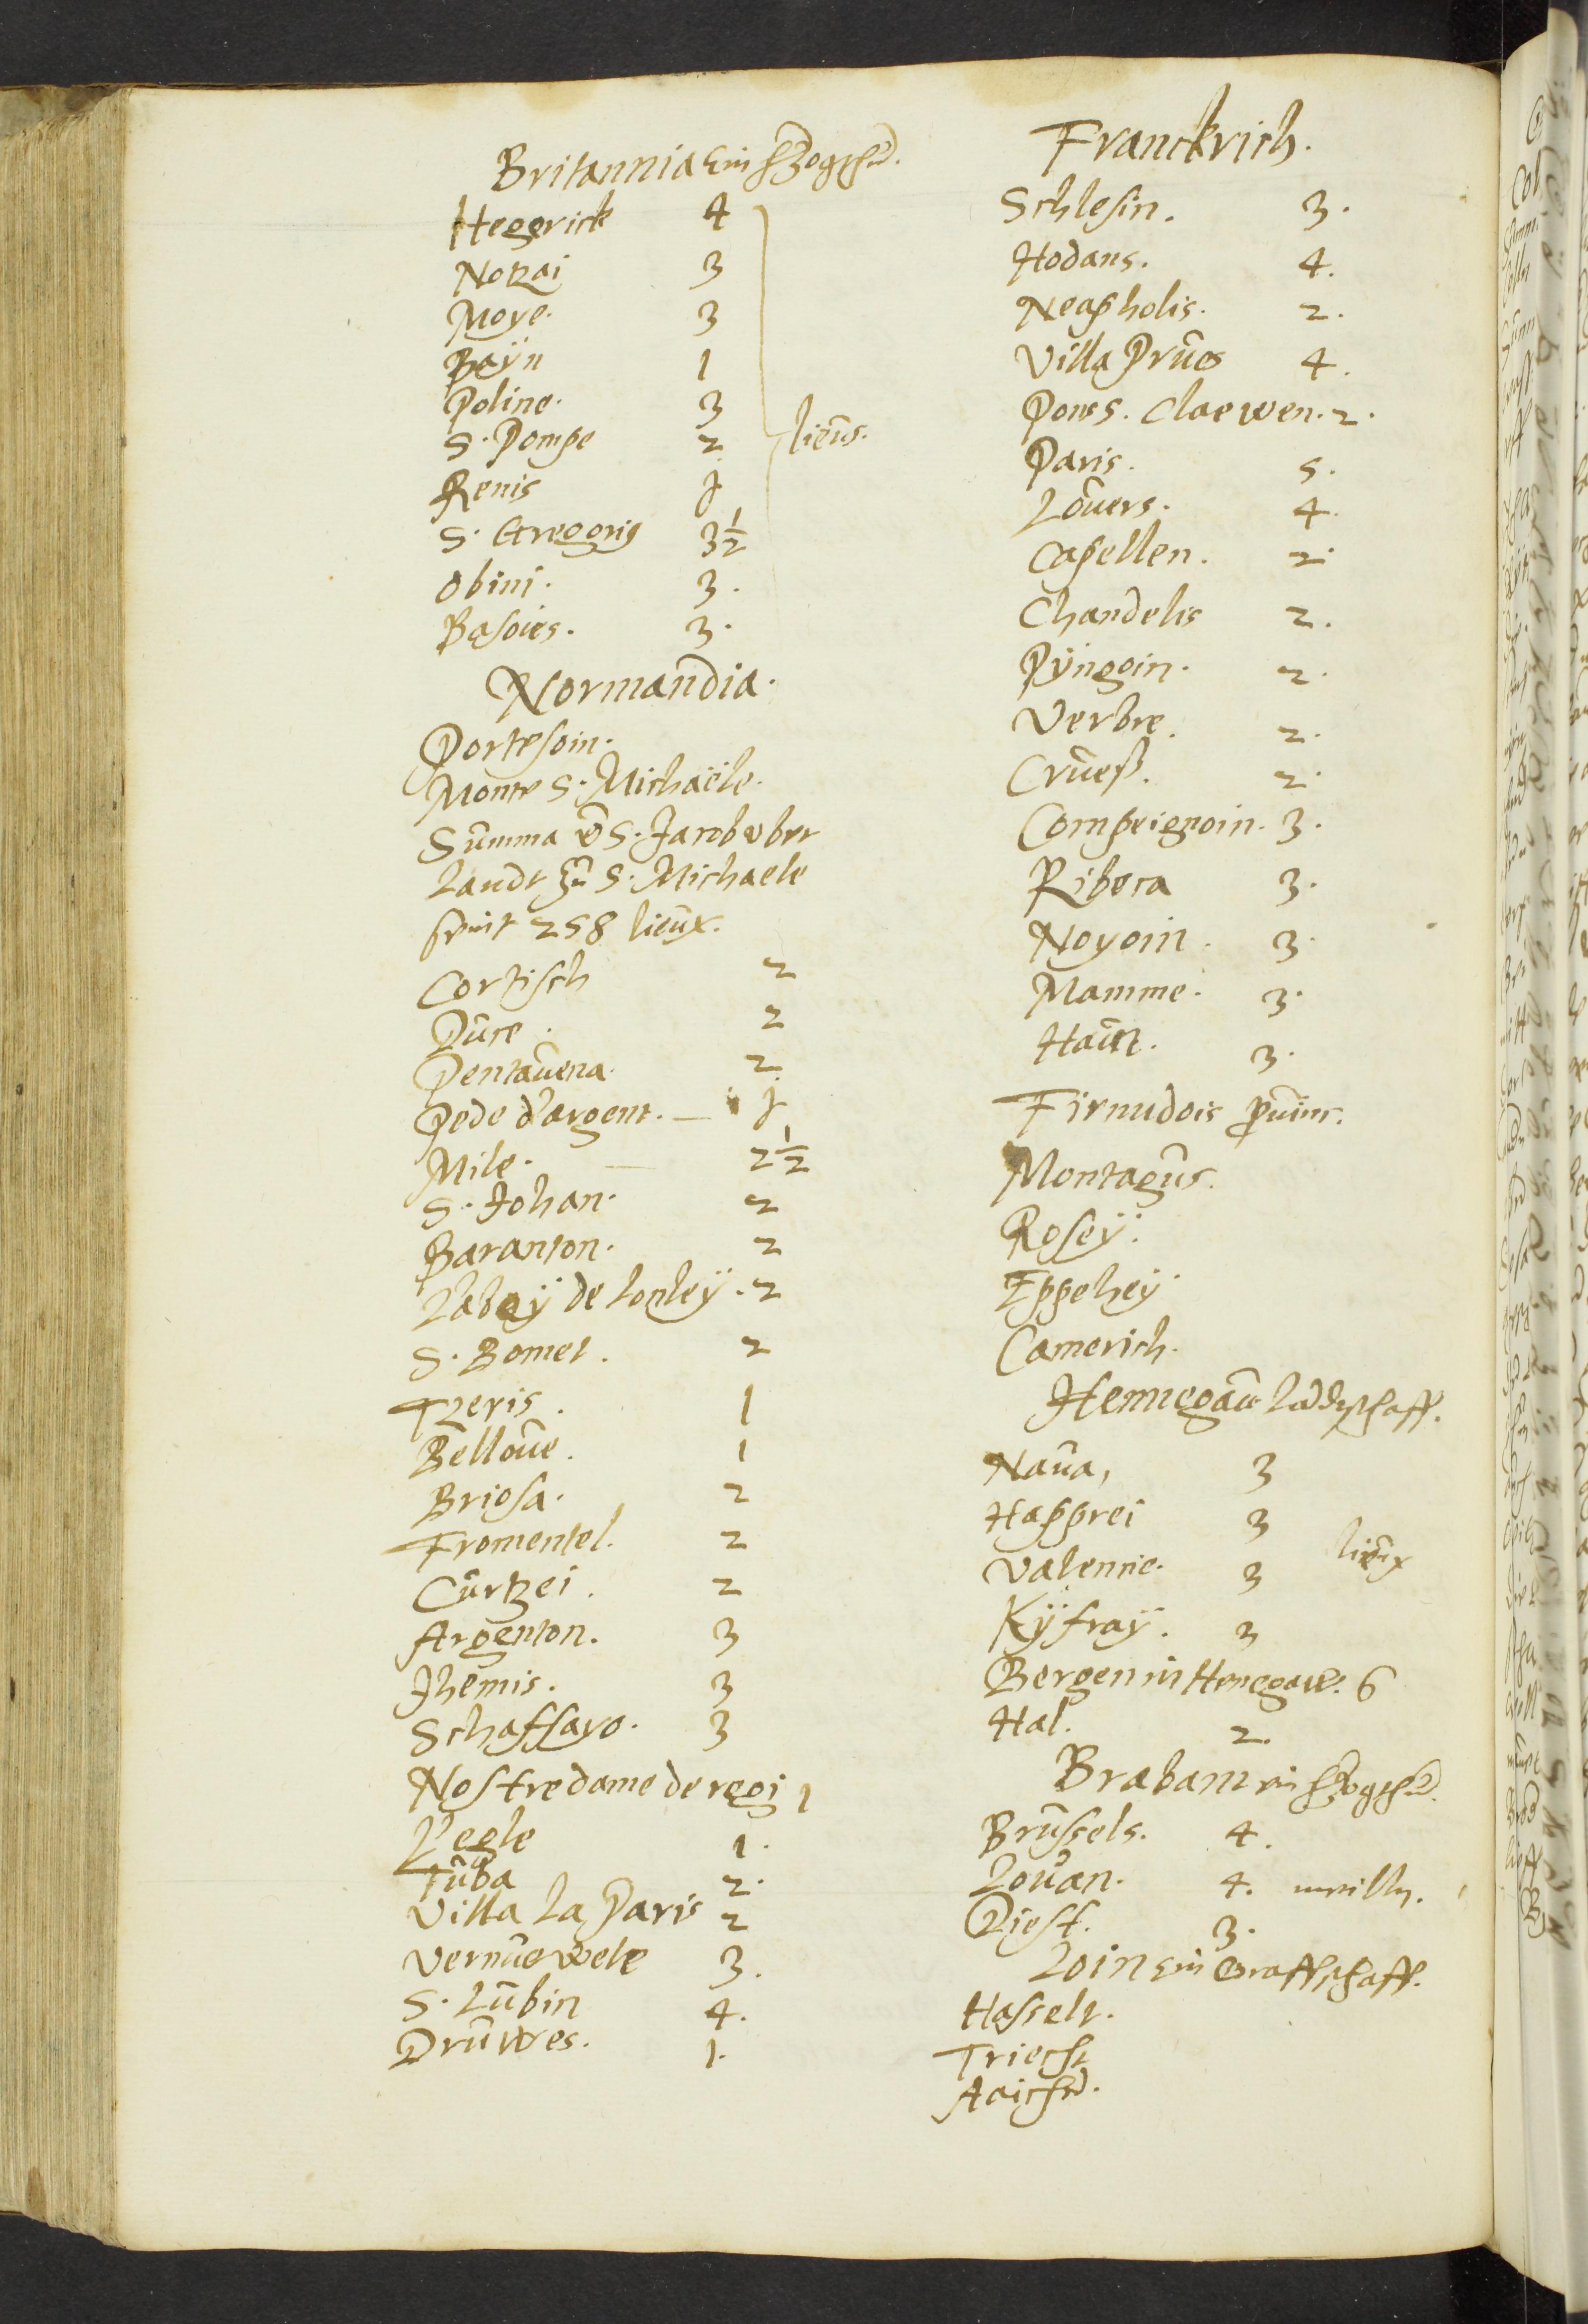 Britannia Ein Hzogth.
Heggrick 4
Notzai 3
Moye. 3
Baÿn 1
Poline. 3
S. Pompe 2
lieus.
Renis J
S. Gregorig 3½
Obini. 3.
Basoies. 3.
Normandia.
Portesoin.
Monte S. Michaële.
Summa vō S. Jacob vber
Landt zu S. Michaele
seint 258 lieux.
Cortisch 2
Duce. 2
Pentauena. 2
Pede d'argent. — J
Mile. — 2½
S. Johan. 2
Baranton. 2
L'abaÿ de Lonleÿ. 2
S. Bomet. 2
Tzeris. 1
Belloue. 1
Briosa. 2
Fromentel. 2
Curtzei. 2
Argenton. 3
Jhemis. 3
Schassayo. 3
Nostre dame de regi 1
L'egle 1.
Tuba 2.
Villa La Paris 2
Vernuewele 3.
S. Lubin 4.
Druwes. 1.
Franckrich.
Schlesin. 3.
Hodans. 4.
Neapholis. 2.
Villa Prues 4.
Pons. Claewen. 2.
Paris. 5.
Louers. 4.
Capellen. 2.
Chandelis 2.
Pÿngoin. 2.
Verbre. 2.
Crueß. 2.
Compeignoin. 3.
Ribera 3.
Noyoin. 3.
Mamme. 3.
Haun. 3.
Firnudois puinc.
Montagus.
Roseÿ.
Eppeheÿ
Camerich.
Hennegau Lādtschafft.
Naua, 3
Happrei 3
lieux
Valennie. 3
Kÿfraÿ. 3
Bergen in Henegaw. 6
Hal. 2.
Brabant ein Hzogth.
Brussels. 4.
Louan. 4. meilln.
Diest. 3.
Loin Ein Graffschafft.
Hasselt.
Triecht
Aaichn.